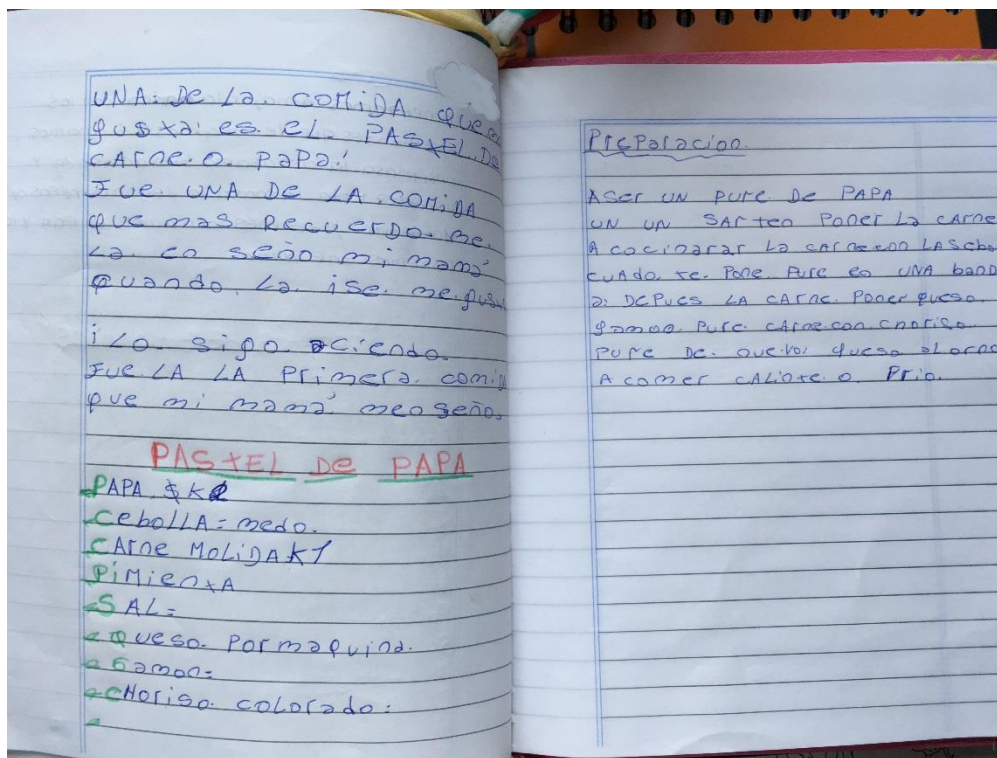 UNA. De La. COMiDA que
gusta. es. eL PASTEL. De
CArne. O. PAPA.
Fue. UNA De LA. COMiDA
que mas Recuerdo. me.
La. en señó mi mamá
quando. La. ise. me. gus
i Lo. sigo aciendo.
Fue LA LA Primera. comi
que mi mamá me o señó.
PASTEL De PAPA
PAPA K
CeboLLA = medo.
CArne MoLiDA K1
PiMienTA
SAL =
Queso. Por maquina.
Gamon =
CHoriso. coLorado:
Preparacion.
ASer UN PURe De PAPA
UN UN SArten Poner La cArne
A cocinarar La cArne con LAS cebo
cuAdo. te. Pone. Pure en UNA band
a: DePues LA cArne. Poner queso.
gamon. Pure. cArne. con choriso.
Pure De. Nuevo. queso. aLorno
A comer cALiNte. o. Frio.